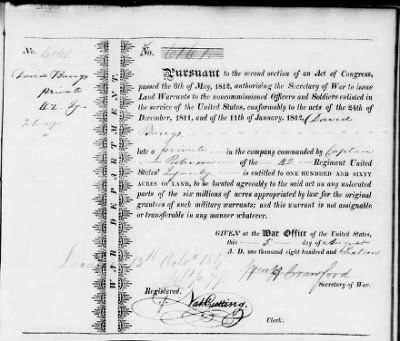 No. 6161
No. 6161
David Bangs
private
42. Iy.
WAR DEPARTMENT.
Pursuant to the second section of an Act of Congress,
passed the 6th of May, 1812, authorising the Secretary of War to issue
Land Warrants to the noncommissioned Officers and Soldiers enlisted in
the service of the United States, conformably to the acts of the 24th of
December, 1811, and of the 11th of January, 1812, David
Bangs
late a private in the company commanded by Captain
Robeson of the 42 Regiment United
States' Infantry is entitled to ONE HUNDRED AND SIXTY
ACRES OF LAND, to be located agreeably to the said act on any unlocated
parts of the six millions of acres appropriated by law for the original
grantees of such military warrants; and this warrant is not assignable
or transferable in any manner whatever.
GIVEN at the War Office of the United States,
this 5 day of August
A. D. one thousand eight hundred and Sixteen
Wm H Crawford
Secretary of War.
Registered.
Nat Cutting
Clerk.